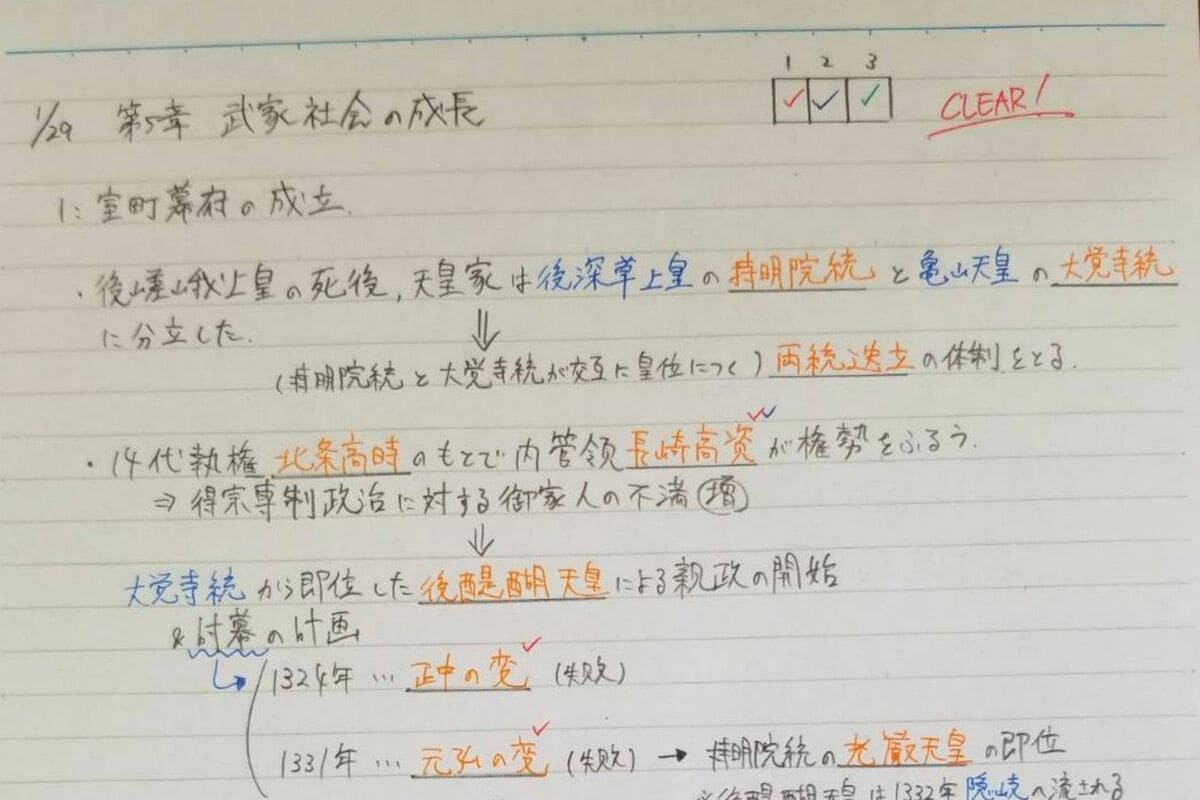 1 2 3
1/29 第5章 武家社会の成長 CLEAR!
1: 室町幕府の成立.
・後嵯峨上皇の死後,天皇家は後深草上皇の持明院統と亀山天皇の大覚寺統
に分立した.
⇓
(持明院統と大覚寺統が交互に皇位につく)両統迭立の体制をとる.
・14代執権 北条高時のもとで内管領長崎高資が権勢をふるう.
⇒ 得宗専制政治に対する御家人の不満 増
⇓
大覚寺統から即位した後醍醐天皇による親政の開始
& 討幕の計画
1324年 … 正中の変 (失敗)
1331年 … 元弘の変 (失敗) → 持明院統の光厳天皇の即位
※後醍醐天皇は1332年隠岐へ流される